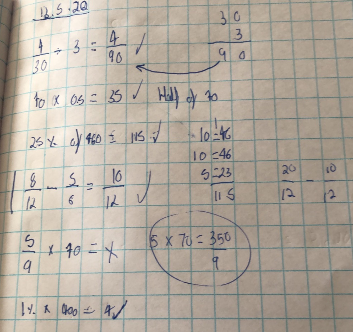 12.5.22
4/30 ÷ 3 = 4/90 ✓
30
3
90
70 × 05 = 35 ✓ Half of 70
25% of 460 = 115 ✓
10 = 46
10 = 46
5 = 23
115
8/12 - 5/6 = 10/12 ✓
20/12 - 10/12
5/9 × 70 = x
5 × 70 = 350/9
1% × 400 = 4 ✓